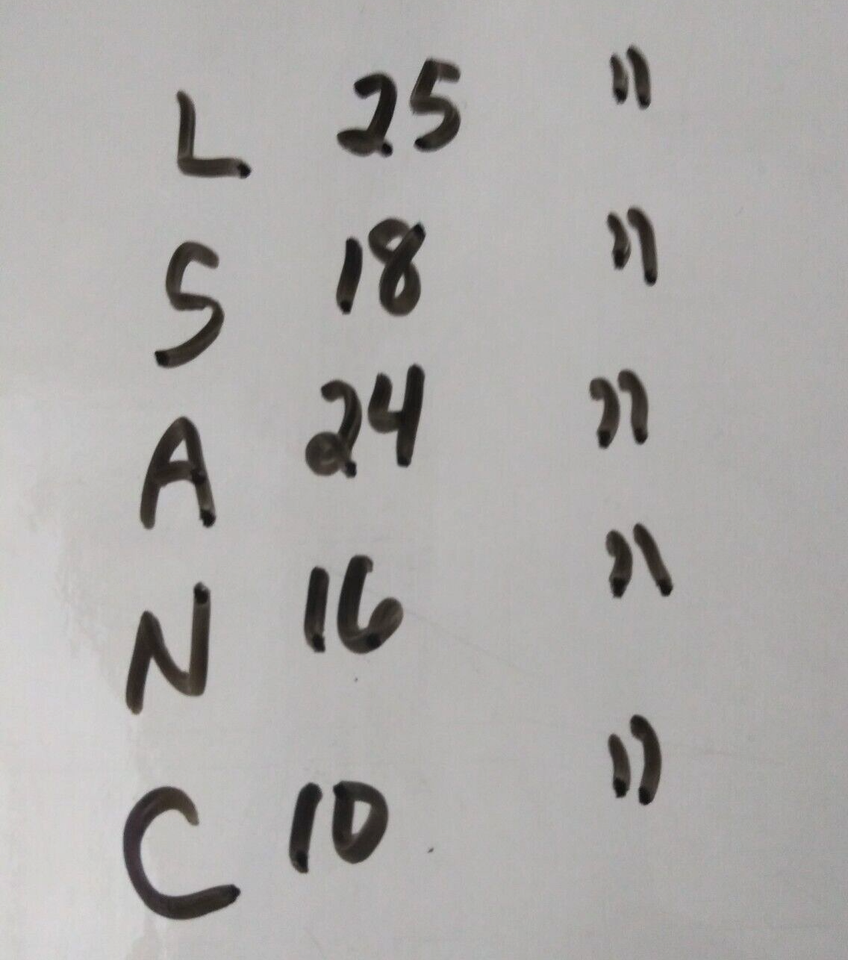 L 25 "
S 18 "
A 24 "
N 16 "
C 10 "